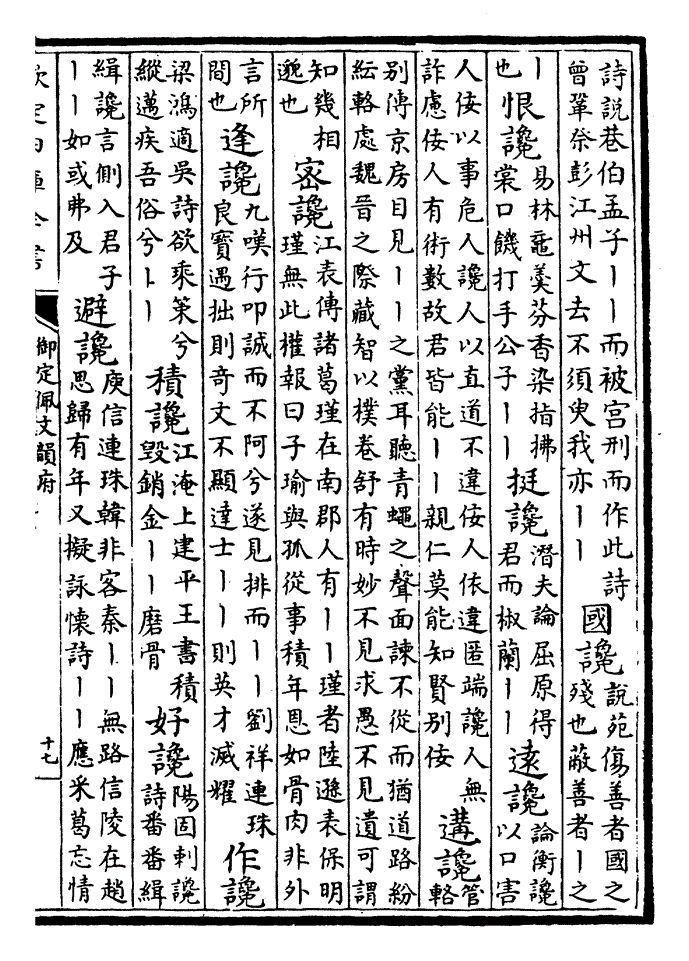 詩說巷伯孟子丨丨而被宫刑而作此詩
曾鞏祭彭江州文去不須臾我亦丨丨
國讒
說苑傷善者國之
殘也蔽善者丨之
丨
也
恨讒
易林黿羹芬香染指拂
裳口饑打手公子丨丨
挺讒
潛夫論屈原得
君而椒蘭丨丨
遠讒
論衡讒
以口害
人佞以事危人讒人以直道不違佞人依違匿端讒人無
詐慮佞人有術數故君皆能丨丨親仁莫能知賢别佞
遘讒
管
輅
别傳京房目見丨丨之黨耳聽青蠅之聲面諫不從而猶道路紛
紜輅處魏晉之際藏智以樸卷舒有時妙不見求愚不見遺可謂
知幾相
邈也
密讒
江表傳諸葛瑾在南郡人有丨丨瑾者陸遜表保明
瑾無此權報曰子瑜與孤從事積年恩如骨肉非外
言所
間也
逢讒
九嘆行叩誠而不阿兮遂見排而丨丨劉祥連珠
良寳遇拙則奇文不顯達士丨丨則英才滅耀
作讒
梁鴻適吳詩欲乘策兮
縱邁疾吾俗兮丨丨
積讒
江淹上建平王書積
毀銷金丨丨磨骨
好讒
陽固刺讒
詩番番緝
緝讒言側入君子
丨丨如或弗及
避讒
庾信連珠韓非客秦丨丨無路信陵在趙
思歸有年又擬詠懷詩丨丨應采葛忘情
欽定四庫全書
御定佩文韻府
十七